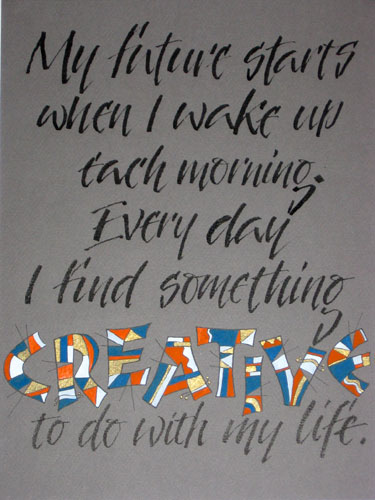 My future starts
when I wake up
each morning.
Every day
I find something
CREATIVE
to do with my life.